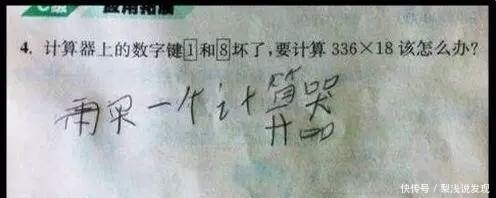 C级 应用拓展
4. 计算器上的数字键1和8坏了,要计算 336×18 该怎么办?
再买一个计算器
快传号 / 梨浅说发现